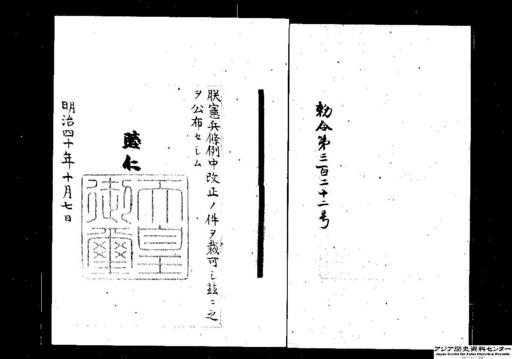 勅令第三百二十二号
朕憲兵條例中改正ノ件ヲ裁可シ茲ニ之
ヲ公布セシム
睦仁
天皇
御璽
明治四十年十月七日
アジア歴史資料センター
Japan Center for Asian Historical Records